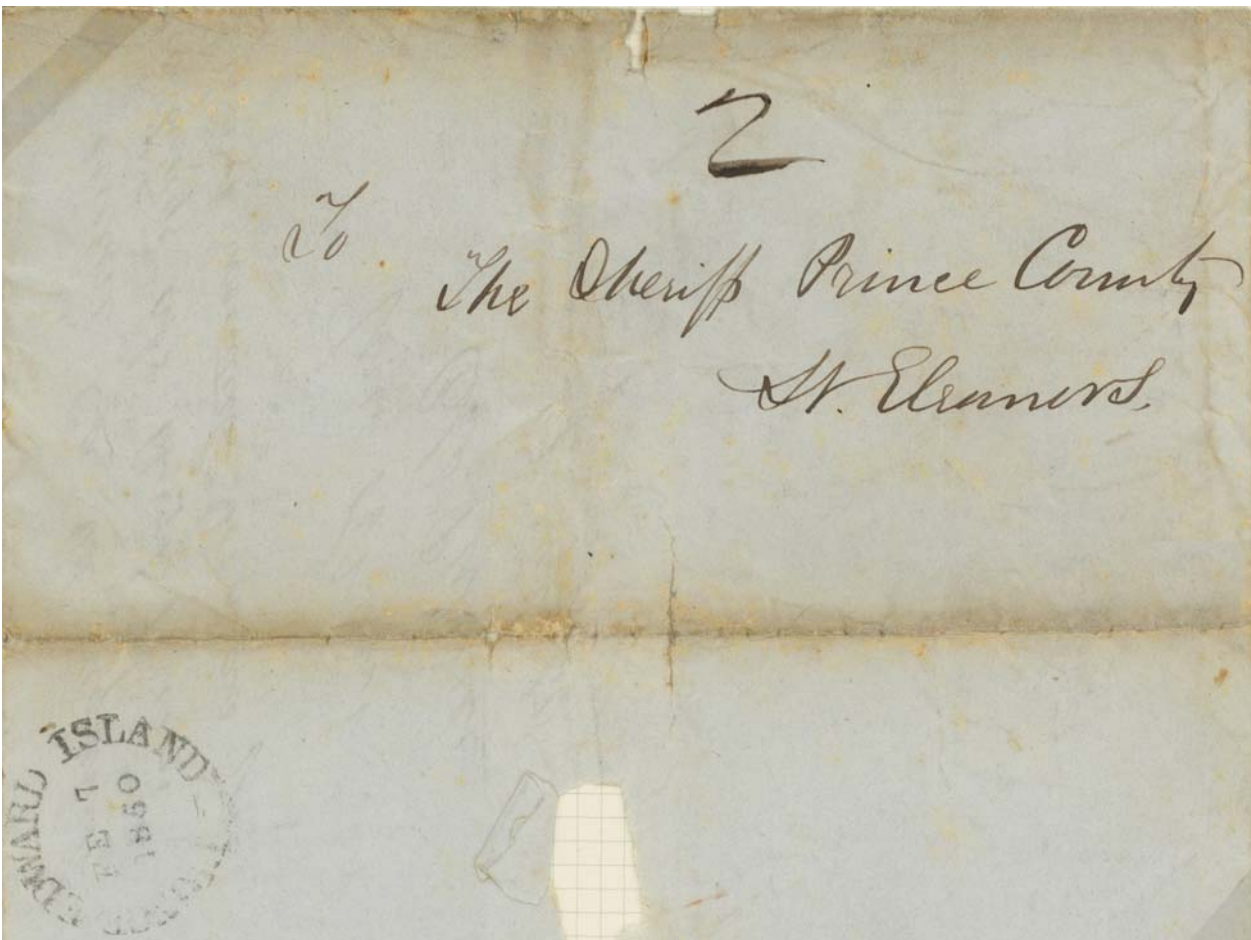 2
To
The Sheriff Prince County
St. Eleanors.
PRINCE EDWARD ISLAND
1850